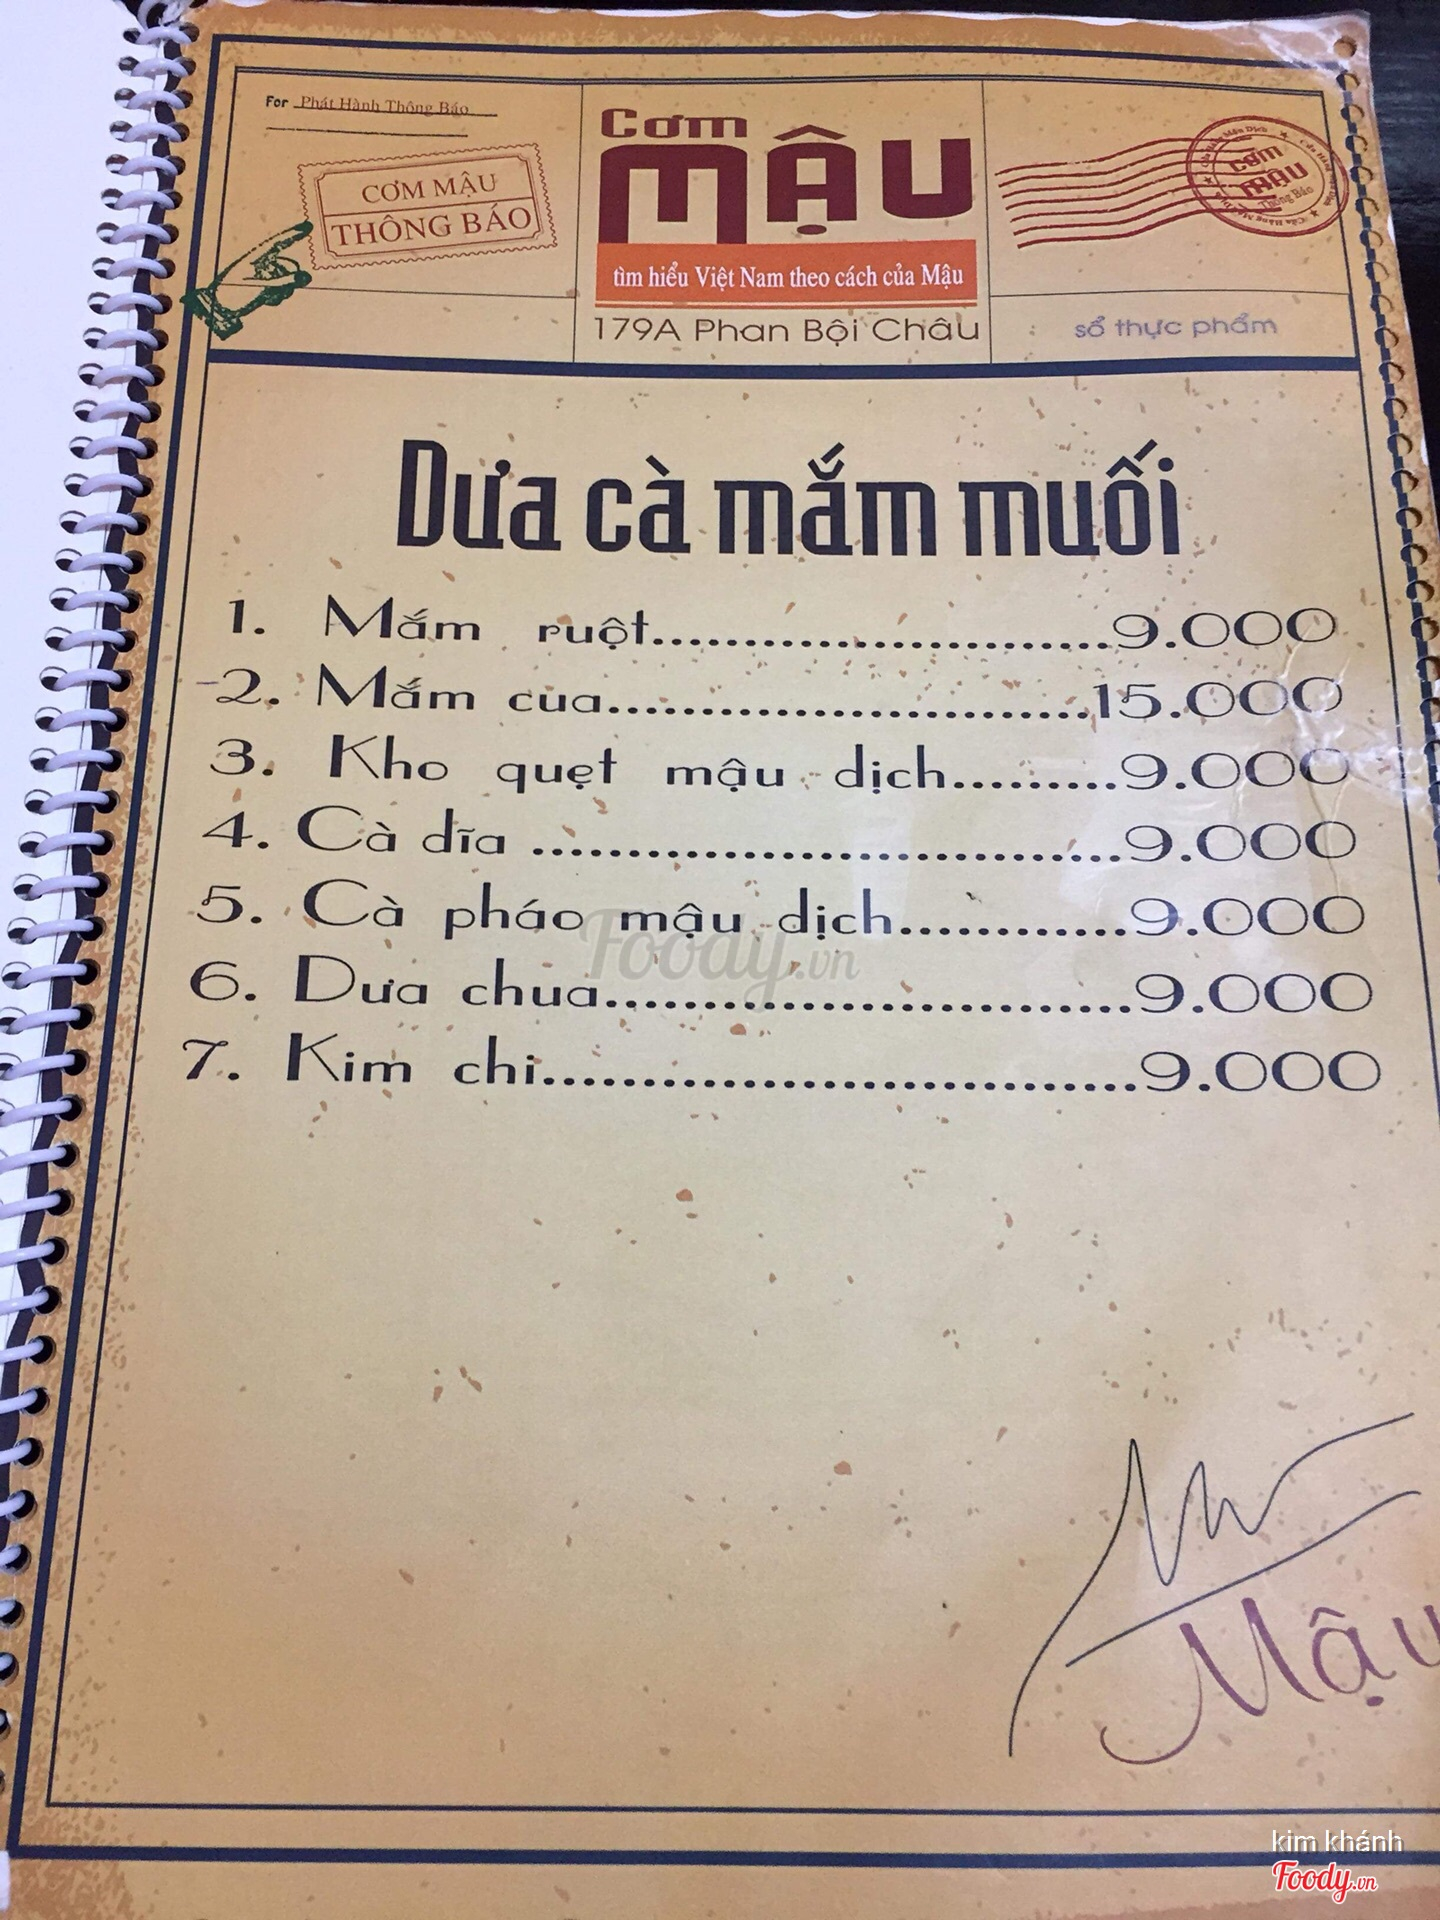 For Phát Hành Thông Báo
CƠM MẬU
THÔNG BÁO
Cơm
MẬU
tìm hiểu Việt Nam theo cách của Mậu
179A Phan Bội Châu
CƠM
MẬU
Thông Báo
sổ thực phẩm
Dưa cà mắm muối
1. Mắm ruột..............................9.000
2. Mắm cua..............................15.000
3. Kho quẹt mậu dịch..........9.000
4. Cà dĩa ..............................9.000
5. Cà pháo mậu dịch............9.000
6. Dưa chua..............................9.000
7. Kim chi..............................9.000
Foody.vn
Mậu
kim khánh
Foody.vn